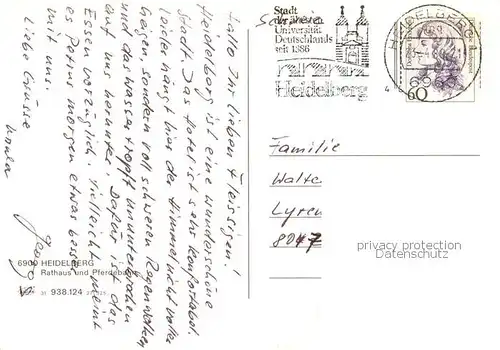 Hallo Ihr lieben Fleissigen!
Heidelberg ist eine wunderschöne
Stadt. Das Hotel ist sehr komfortabel.
Leider hängt hier der Himmel nicht voller
Geigen sondern voll schweren Regenwolken
und das Wasser tropft ununterbrochen
auf uns herunter. Dafür ist das
Essen vorzüglich. Vielleicht meint
es Petrus morgen etwas besser
mit uns.
Liebe Grüsse
6900 HEIDELBERG
Rathaus und Pferde
938.124
Stadt
der ältesten
Universität
Deutschlands
seit 1386
Heidelberg
HEIDELBERG 1
60
Familie
Walte
Lyren
8047
privacy protection
Datenschutz